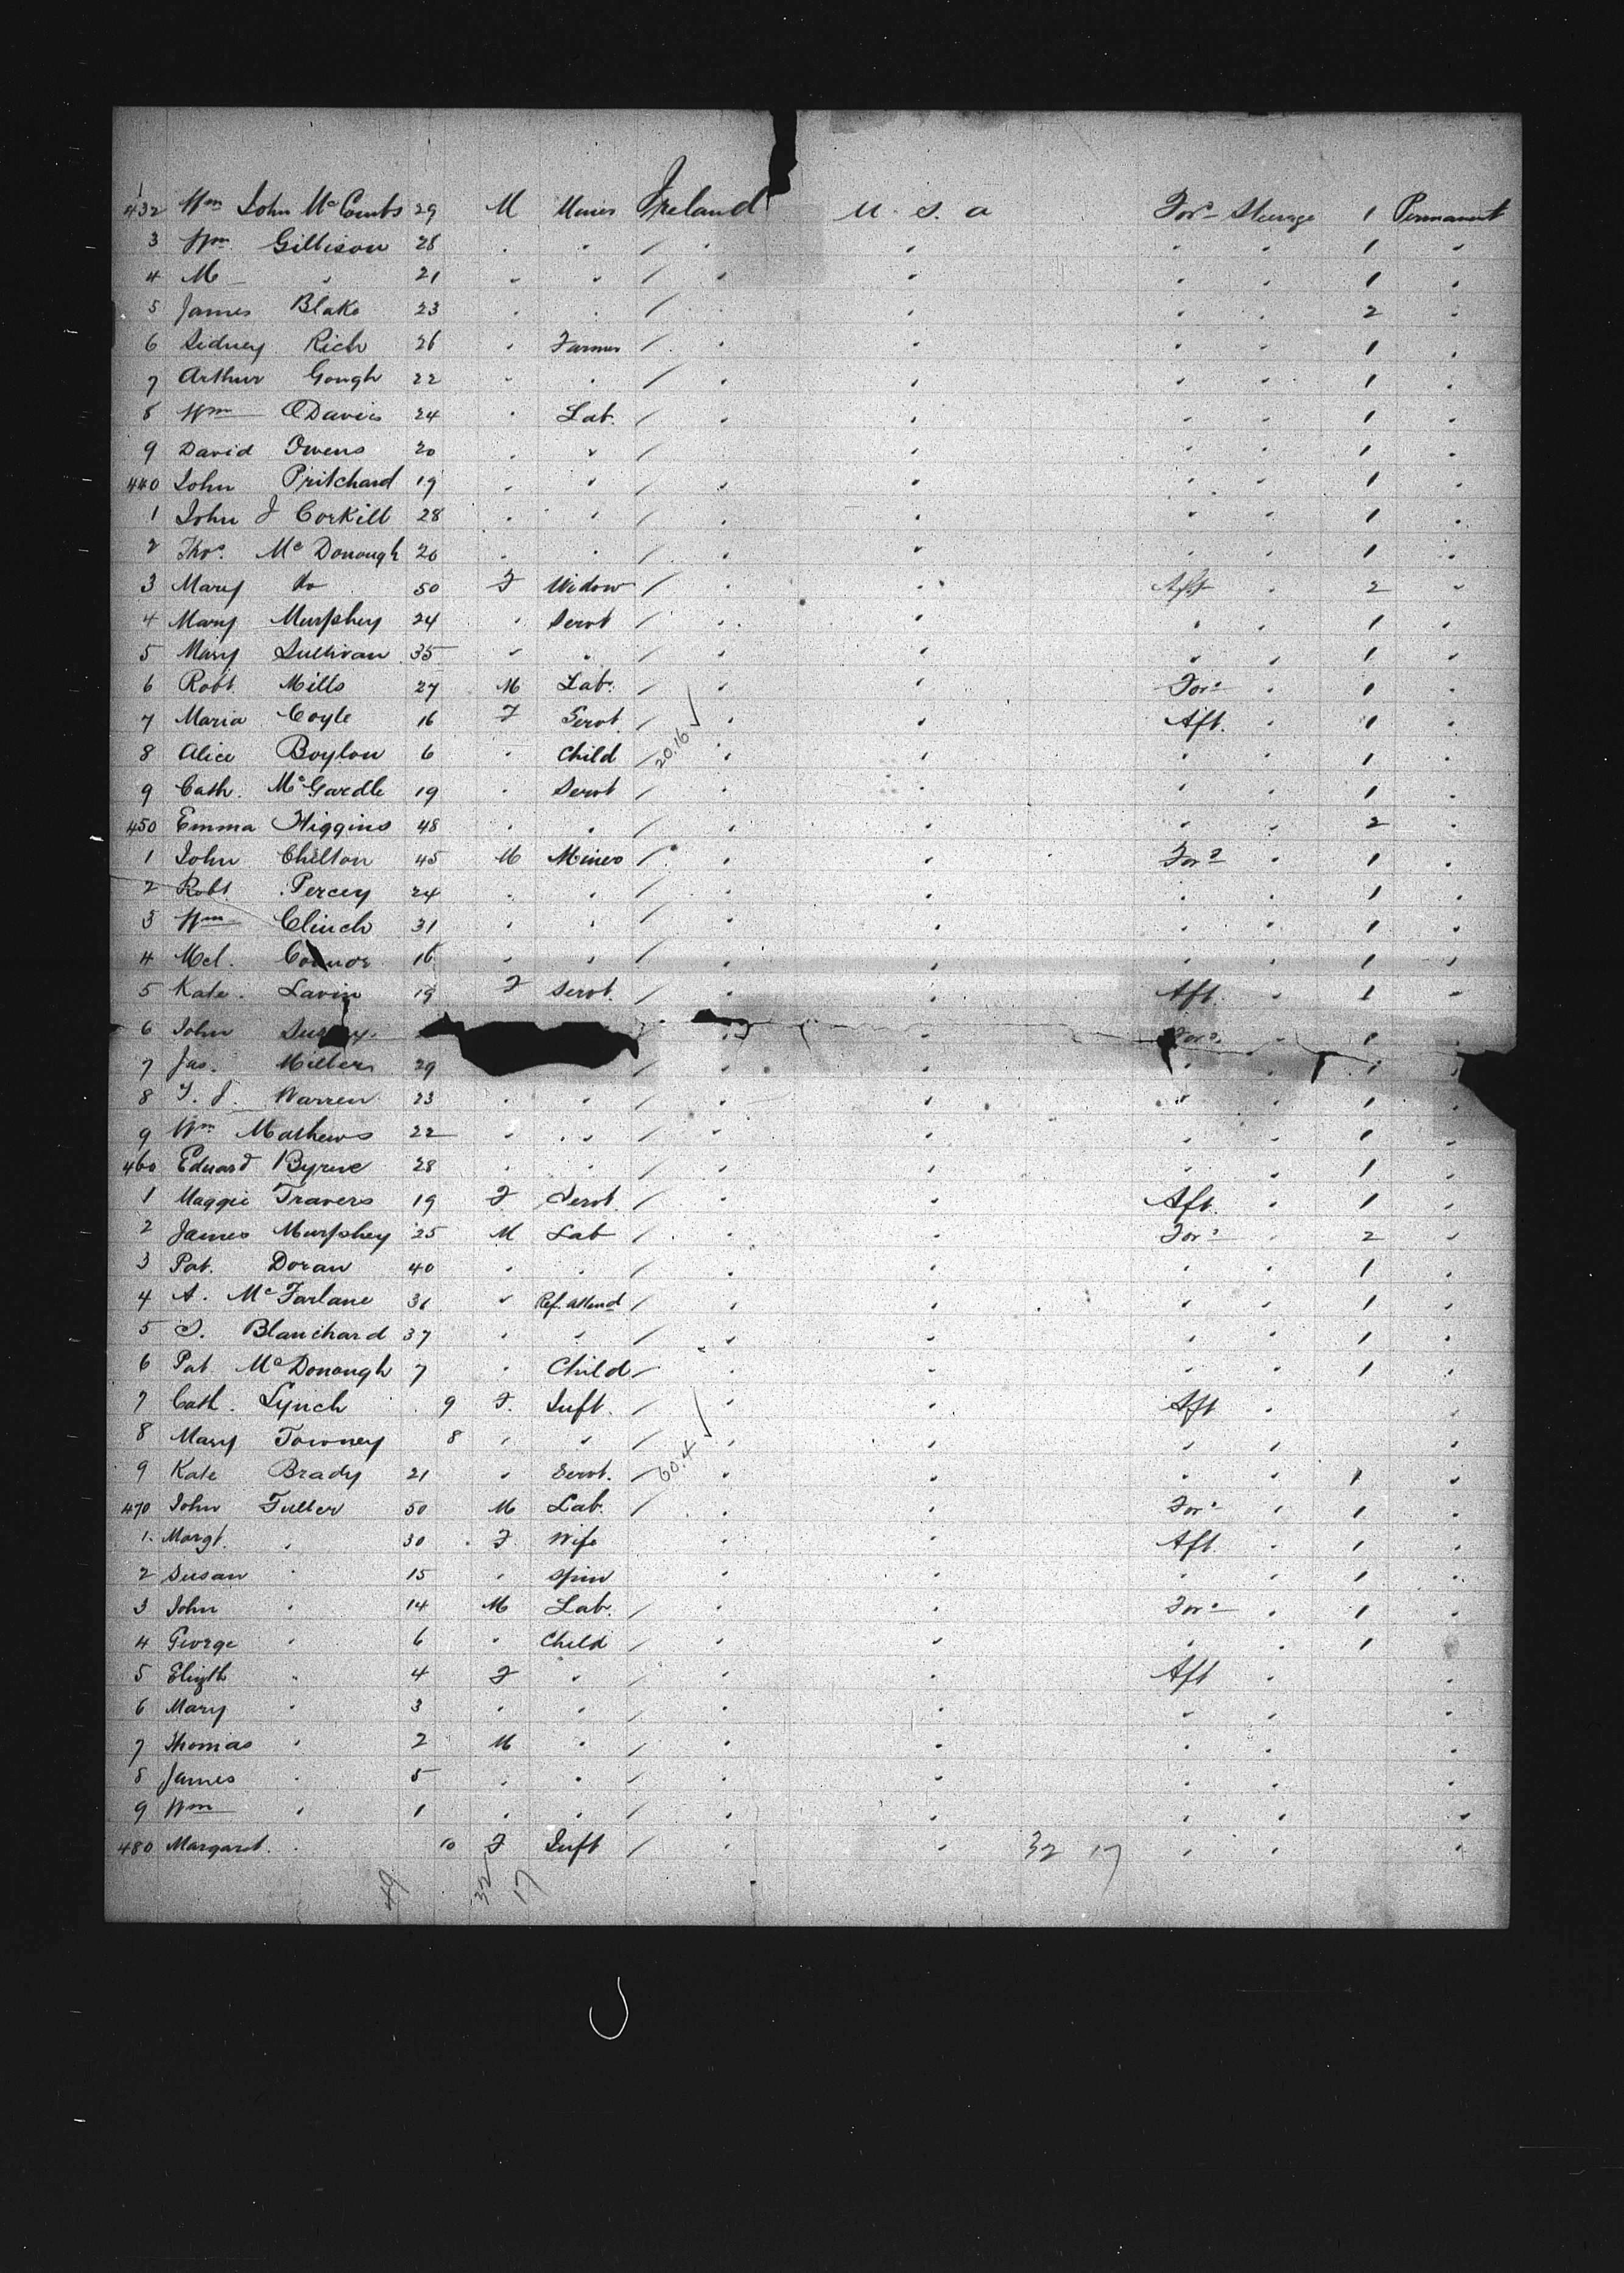 432 Wm John McCombs 29 M Miner Ireland U.S.A For'd Steerage 1 Permanent
3 Wm Gillison 28 " " / " " " " 1 "
4 M " 21 " " / " " " " 1 "
5 James Blake 23 " " / " " " " 2 "
6 Sidney Rich 26 " Farmer / " " " " 1 "
7 Arthur Gough 22 " " / " " " " 1 "
8 Wm O Davies 24 " Lab. / " " " " 1 "
9 David Owens 20 " " / " " " " 1 "
440 John Pritchard 19 " " / " " " " 1 "
1 John J Corkill 28 " " / " " " " 1 "
2 Thos. McDonough 20 " " / " " " " 1 "
3 Mary do 50 F Widow / " " Aft " 2 "
4 Mary Murphey 24 " Servt / " " " " 1 "
5 Mary Sullivan 35 " " / " " " " 1 "
6 Robt. Mills 27 M Lab. / " " For'd " 1 "
7 Maria Coyle 16 F Servt. / " " Aft. " 1 "
8 Alice Boylon 6 " Child / 20.16 " " " " 1 "
9 Cath. McGardle 19 " Servt / " " " " 1 "
450 Emma Higgins 48 " " / " " " " 2 "
1 John Chilton 45 M Miner / " " For'd " 1 "
2 Robt. Percey 24 " " / " " " " 1 "
3 Wm Clinch 31 " " / " " " " 1 "
4 Mcl. Connor 16 " " / " " " " 1 "
5 Kate Lavin 19 F Servt. / " " Aft. " 1 "
6 John " " For'd " 1 "
7 Jas. Millers 29 / " " " " 1 "
8 T. J. Warren 23 " " / " " " " 1 "
9 Wm Mathews 22 " " / " " " " 1 "
460 Edward Byrne 28 " " / " " " " 1 "
1 Maggie Travers 19 F Servt. / " " Aft. " 1 "
2 James Murphey 25 M Lab / " " For'd " 2 "
3 Pat. Doran 40 " " / " " " " 1 "
4 A. McFarlane 31 " Ref. Attend / " " " " 1 "
5 S. Blanchard 37 " " / " " " " 1 "
6 Pat McDonough 7 " Child / " " " " 1 "
7 Cath. Lynch 9 F. Inft. / " " Aft "  "
8 Mary Towney 8 " " / 60.4 " " " "  "
9 Kate Brady 21 " Servt. / " " " " 1 "
470 John Fuller 50 M Lab. / " " For'd " 1 "
1 Margt. " 30 F Wife " " Aft " 1 "
2 Susan " 15 " Spin / " " " " 1 "
3 John " 14 M Lab. / " " For'd " 1 "
4 George " 6 " Child / " " " " 1
5 Elizth " 4 F " / " " Aft "  "
6 Mary " 3 " " / " " " "  "
7 Thomas " 2 M " / " " " "  "
8 James " 5 " " / " " " "  "
9 Wm " 1 " " / " " " "  "
480 Margaret. " 10 F Inft / " " 32 17 " "  "
49 32 17